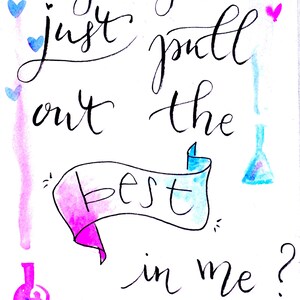 just pull
out the
best
in me ?